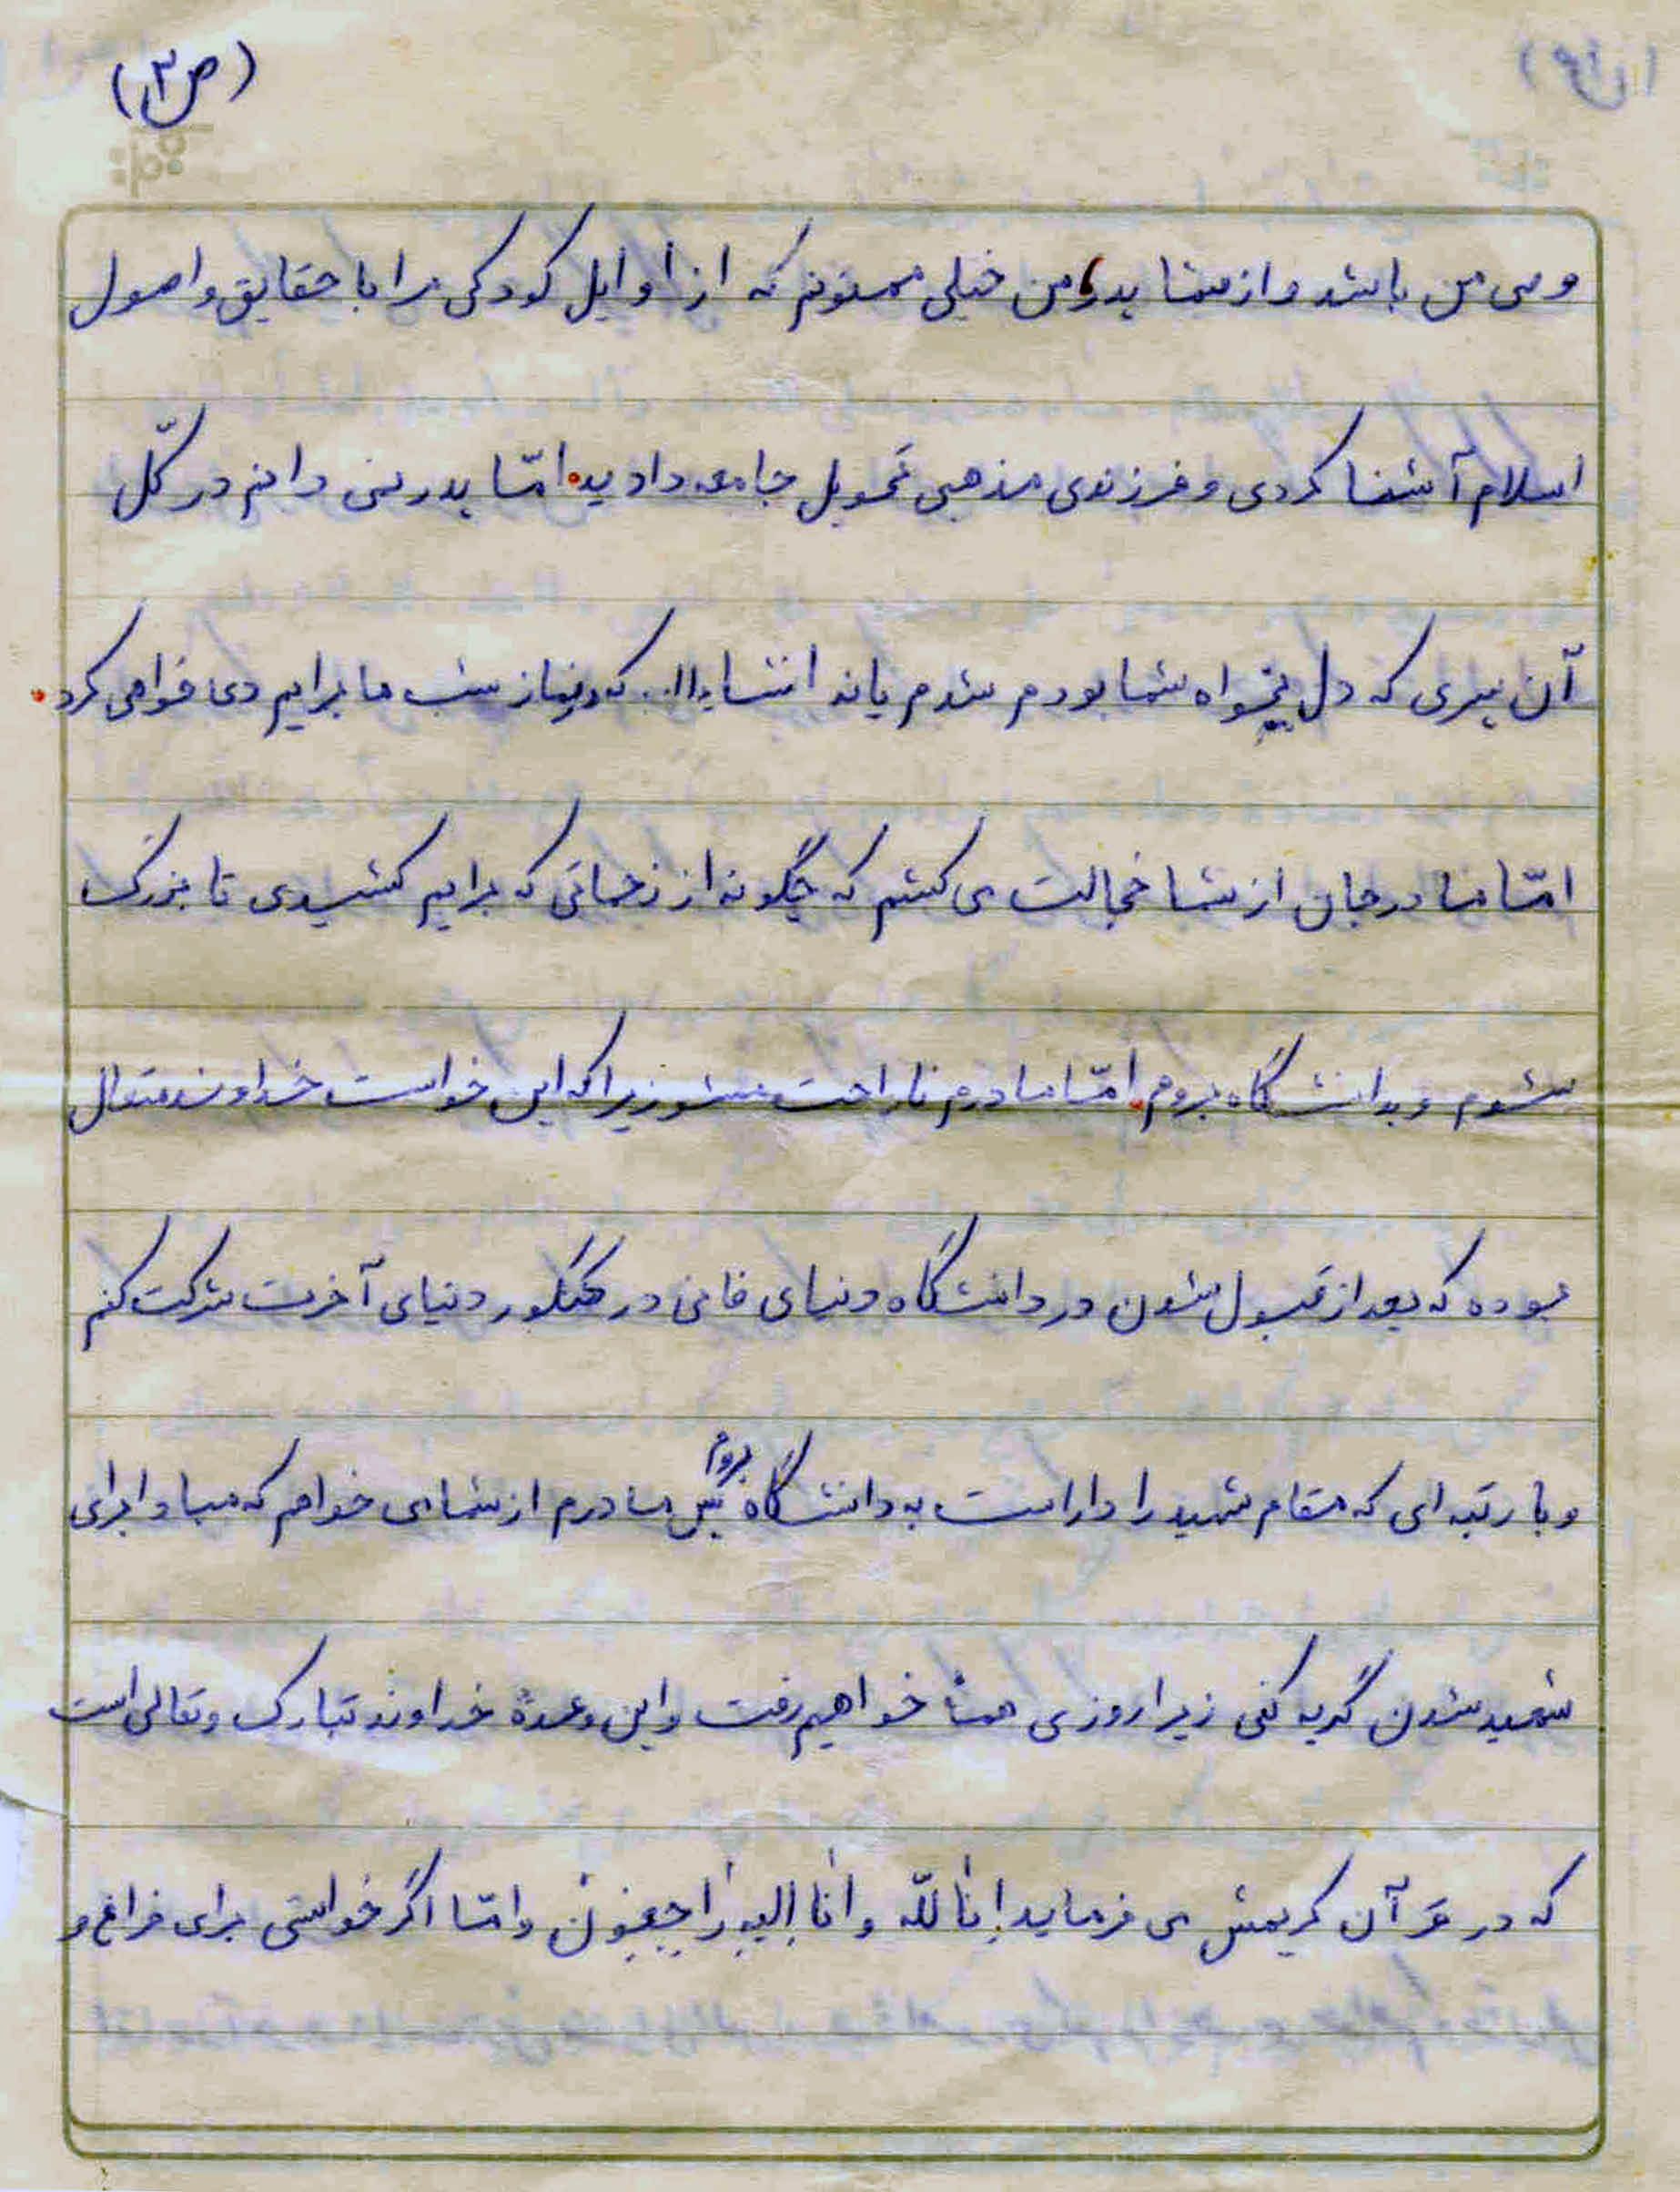 (ص۳)
وصی من باشد و از شما پدر من خیلی ممنونم که از اوایل کودکی مرا با حقایق و اصول
اسلام آشنا کردی و فرزندی مذهبی تحویل جامعه دادید. امّا پدر نمی دانم در کلّ
آن پسری که دل بخواه شما بودم شدم یا نه انشاءالله که در نماز شب ها برایم دعا خواهی کرد.
امّا مادر جان از شما خجالت می کشم که چگونه از زحماتی که برایم کشیدی تا بزرگ
شوم و بدانشگاه بروم. امّا مادرم ناراحت نشو زیرا که این خواست خداوند متعال
بوده که بعد از قبول شدن در دانشگاه دنیای فانی در کنکور دنیای آخرت شرکت کنم
و با رتبه ای که مقام شهید را داراست به دانشگاه بروم پس مادرم از شما می خواهم که مبادا برای
شهید شدن گریه کنی زیرا روزی همه خواهیم رفت و این وعدهٔ خداوند تبارک و تعالی است
که در قرآن کریمش می فرماید إنّا للّه و انا إلیه راجعون و امّا اگر خواستی برای فراغ و